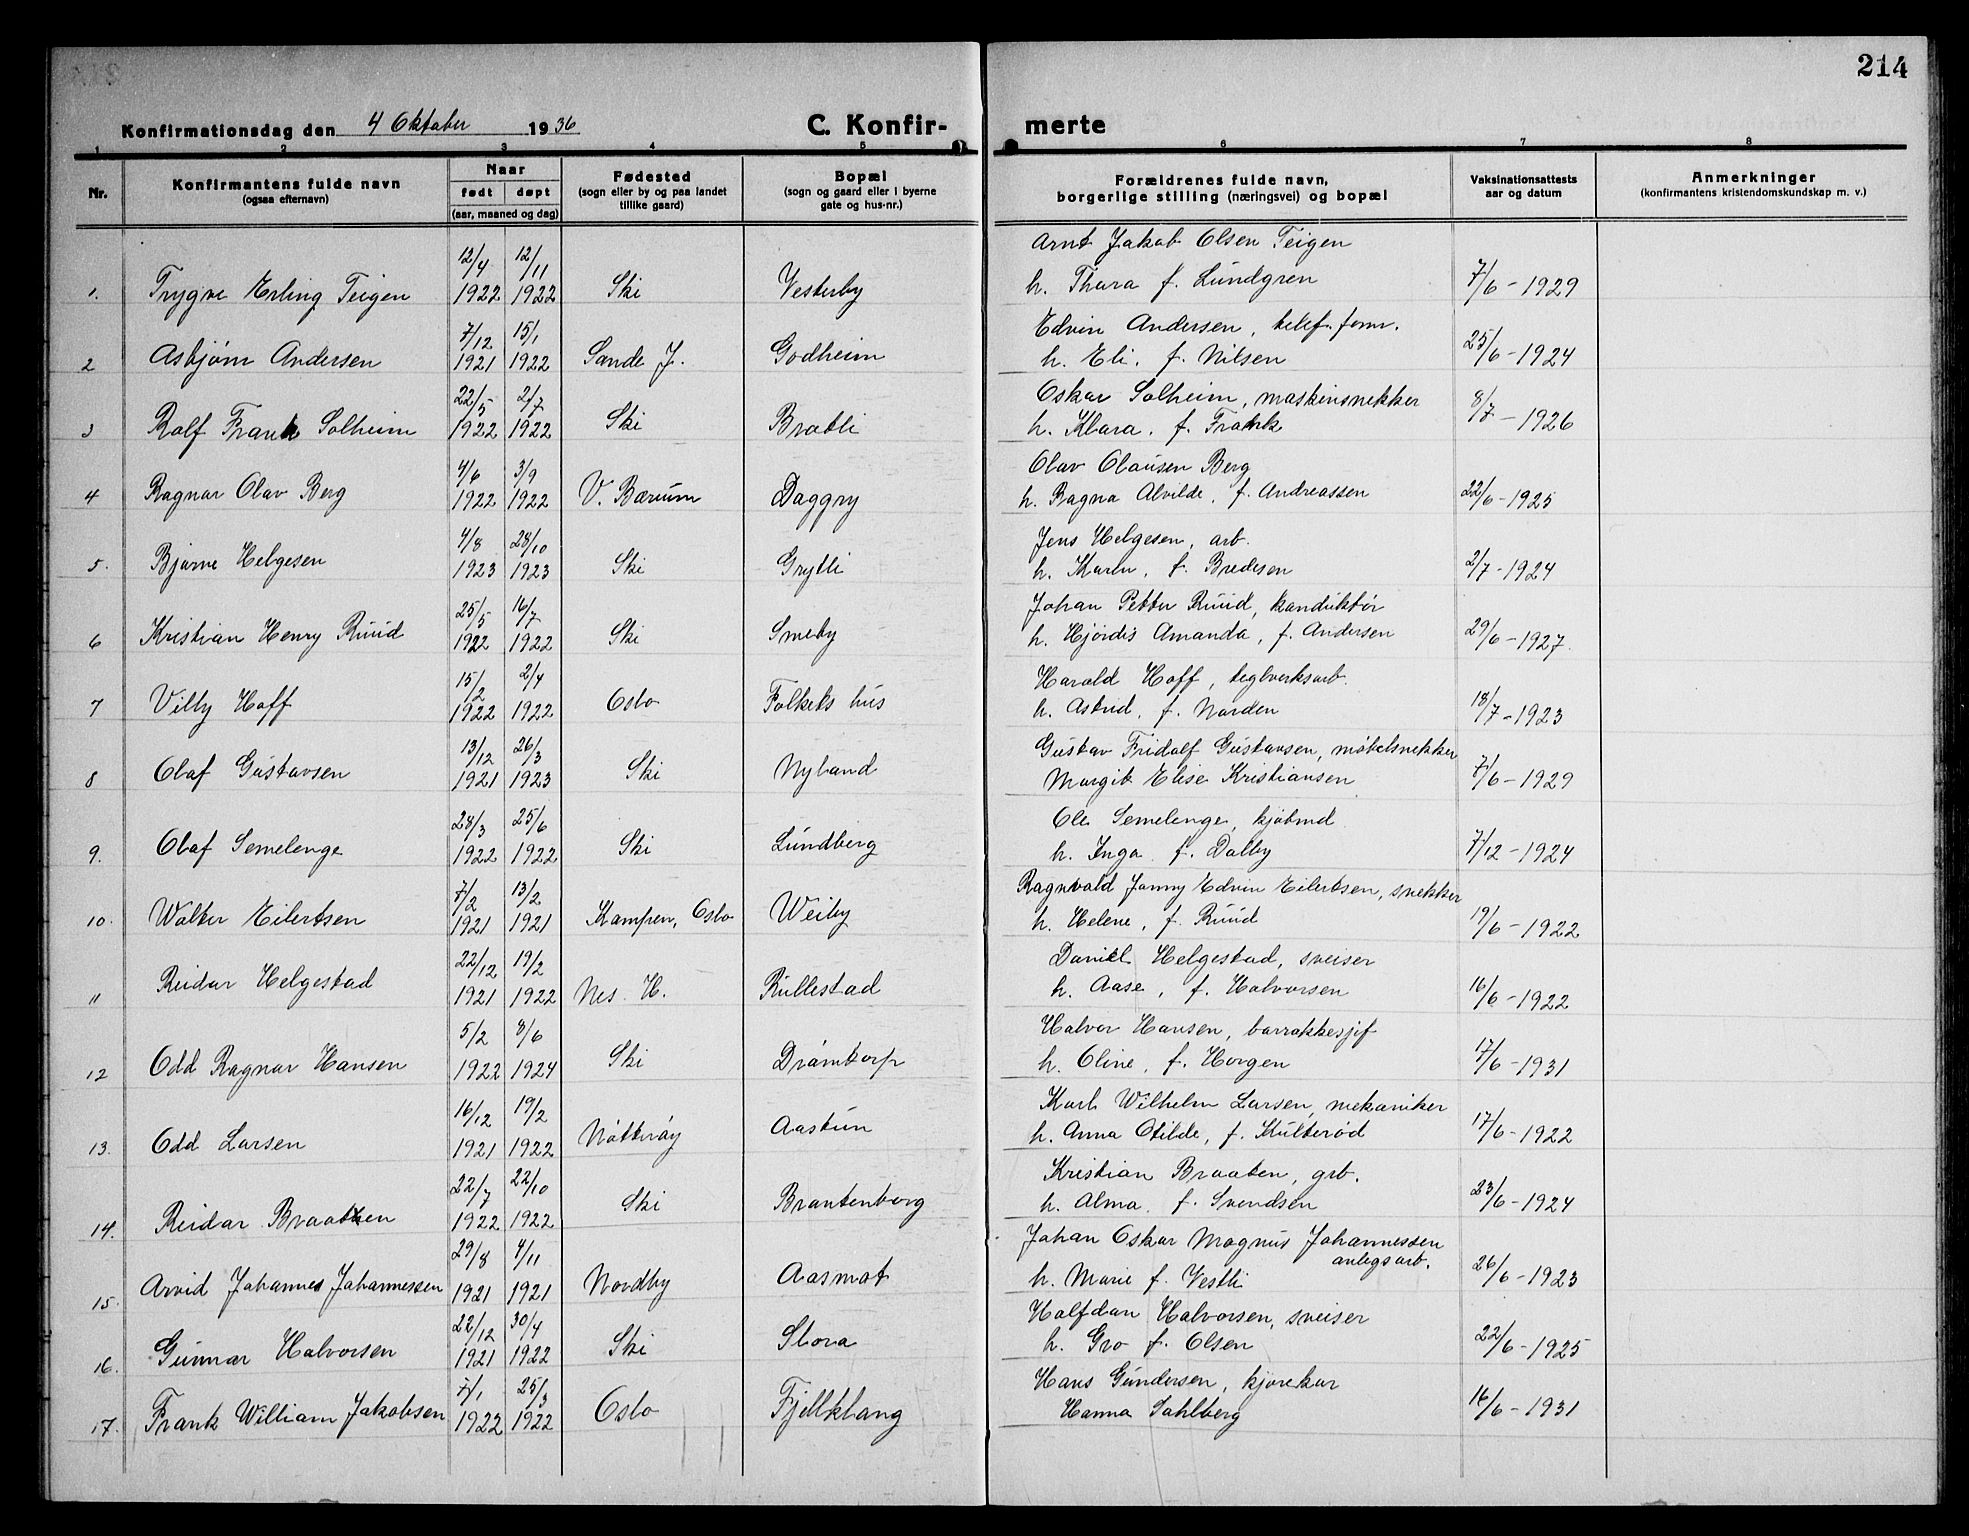 214
Konfirmationsdag den 4 Oktober 1936 C. Konfir- merte
1 2 3 4 5 6 7 8
Nr. Konfirmantens fulde navn (ogsaa efternavn) Naar født døpt (aar, maaned og dag) Fødested (sogn eller by og paa landet tillike gaard) Bopæl (sogn og gaard eller i byerne gate og hus-nr.) Forældrenes fulde navn, borgerlige stilling (næringsvei) og bopæl Vaksinationsattests aar og datum Anmerkninger (konfirmantens kristendomskundskap m. v.)
12/4 12/11 Arnt Jakob Olsen Teigen
1. Trygve Erling Teigen 1922 1922 Ski Vesterby h. Thara f. Lundgren 7/6-1929
7/12 15/1 Edvin Andersen, telef.form.
2 Asbjørn Andersen 1921 1922 Sande J. Godheim h. Eli. f. Nilsen 25/6-1924
22/5 2/7 Oskar Solheim, maskinsnekker
3 Rolf Frank Solheim 1922 1922 Ski Bratli h. Klara. f. Frank 8/7-1926
4/6 3/9 Olav Clausen Berg
4 Ragnar Olav Berg 1922 1922 V. Bærum Daggry h. Ragna Alvilde, f. Andreassen 22/6-1925
4/8 28/10 Jens Helgesen, arb.
5. Bjarne Helgesen 1923 1923 Ski Grytli h. Karen, f. Bredesen 2/7-1924
25/5 16/7 Johan Petter Ruud, konduktør
6 Kristian Henry Ruud 1922 1922 Ski Smeby h. Hjørdis Amanda, f. Andersen 29/6-1927.
15/2 2/4 Harald Hoff, teglverksarb.
7 Villy Hoff 1922 1922 Oslo Folkets hus h. Astrid, f. Norden 18/7-1923
13/12 26/3 Gustav Fridolf Gustavsen, møbelsnekker
8 Olaf Gustavsen 1921 1923 Ski Nyland Margit Elise Kristiansen 7/6-1929
28/3 25/6 Ole Semelenge, kjøbmd
9. Olaf Semelenge 1922 1922 Ski Lundberg h. Inga f. Dalby 7/12-1924
7/2 13/2 Ragnvald Jonny Edvin Eilertsen, snekker
10. Walter Eilertsen 1921 1921 Kampen, Oslo Weiby h. Helene, f. Ruud 19/6-1922
22/12 19/2 Daniel Helgestad, sveiser
11 Reidar Helgestad 1921 1922 Nes. H. Rullestad h. Aase, f. Halvorsen 16/6-1922
5/2 8/6 Halvor Hansen, barrakkesjef
12 Odd Ragnar Hansen 1922 1924 Ski Drømtorp h. Oline, f. Horgen 17/6-1931
16/12 19/2 Karl Wilhelm Larsen, mekaniker
13. Odd Larsen 1921 1922 Nøtterøy Aastun h. Anna Otilde, f. Kulterød 17/6-1922
22/7 22/10 Kristian Braaten, grb.
14. Reidar Braathen 1922 1922 Ski Brantenborg h. Alma. f. Svendsen 23/6-1924
29/8 4/11 Johan Oskar Magnus Johannessen
anlegsarb.
15. Arvid Johannes Johannessen 1921 1921 Nordby Aasmot h. Marie f. Vestli 26/6-1923
22/12 30/4 Halfdan Halvorsen, sveiser
16. Gunnar Halvorsen 1921 1922 Ski Stora h. Gro f. Olsen 22/6-1925
7/1 25/3 Hans Gundersen, kjørekar
17. Frank William Jakobsen 1922 1922 Oslo Fjellklang Hanna Sahlberg 16/6-1931